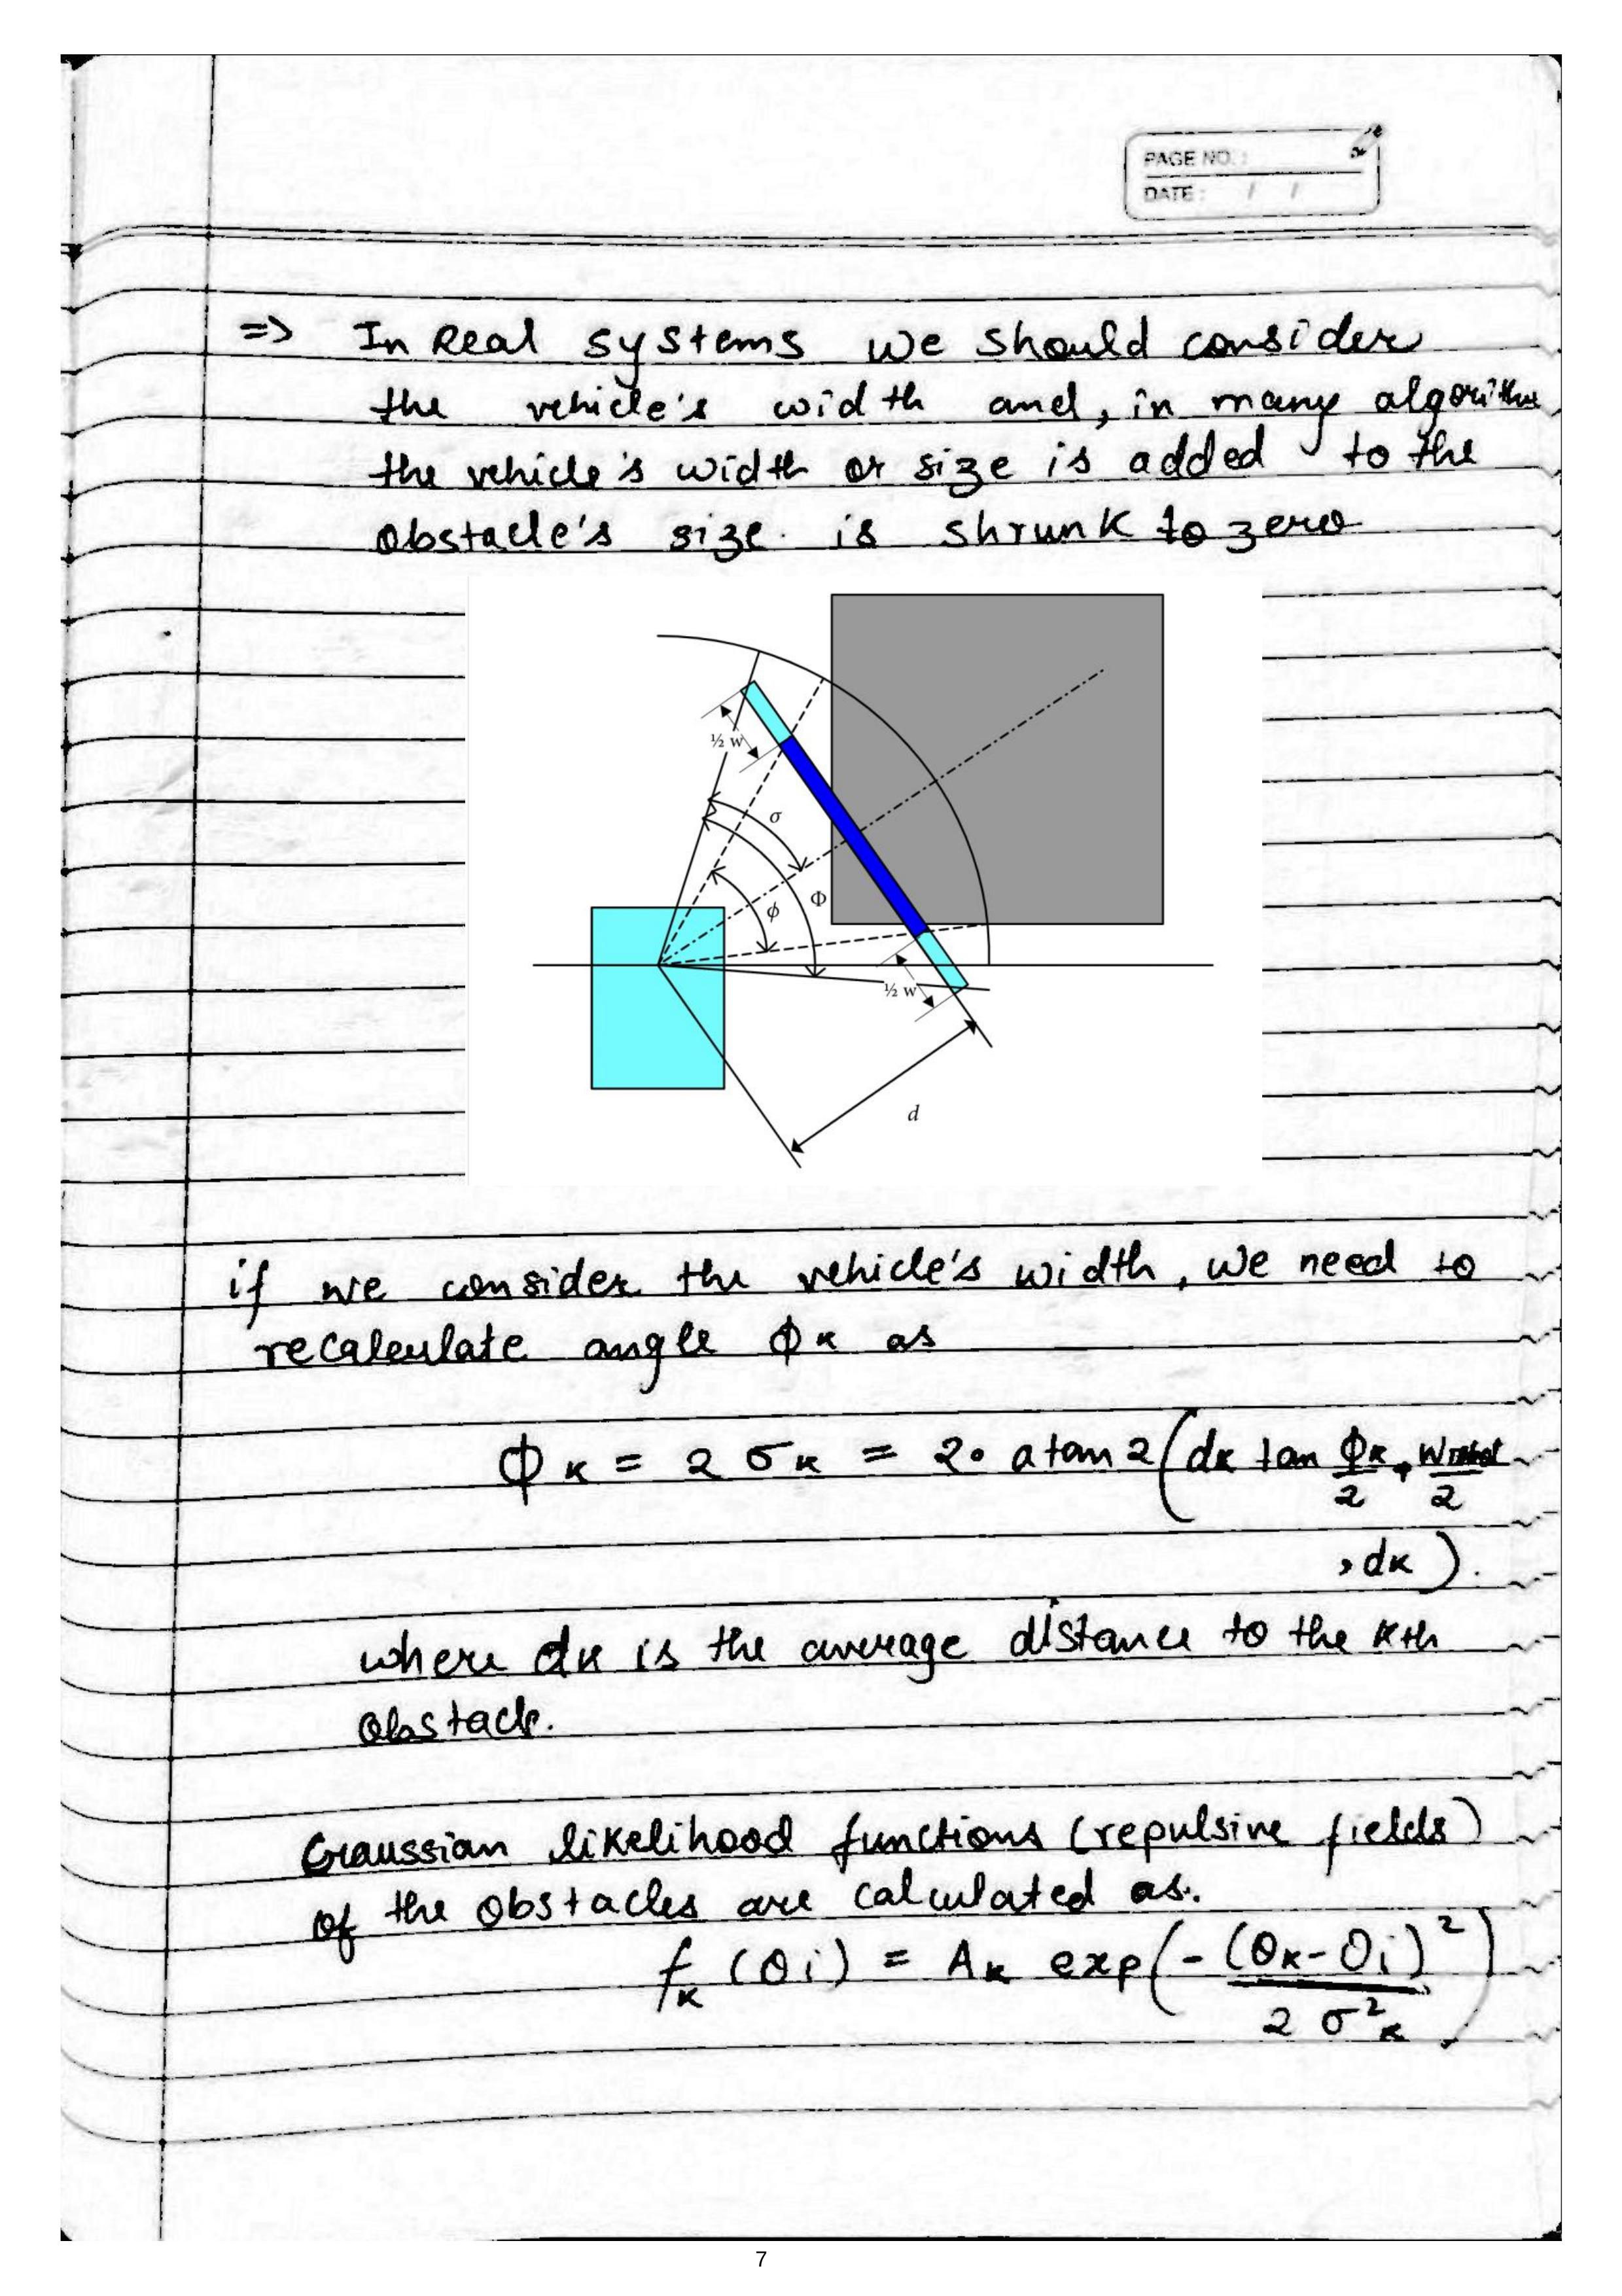 PAGE NO. :
DATE : / /
=> In Real systems we should consider
the vehicle's width and, in many algorithm
the vehicle's width or size is added to the
obstacle's size. is shrunk to zero
½ w
σ
Φ
ϕ
½ w
d
if we consider the vehicle's width, we need to
recalculate angle ϕκ as
ϕκ = 2 σκ = 2. atan2(dκ tan ϕκ/2 + w/2
, dκ).
where dκ is the average distance to the κth
obstacle.
Gaussian likelihood functions (repulsive fields)
of the obstacles are calculated as.
fκ (θi) = Aκ exp(- (θκ-θi)² / 2 σ²κ)
7